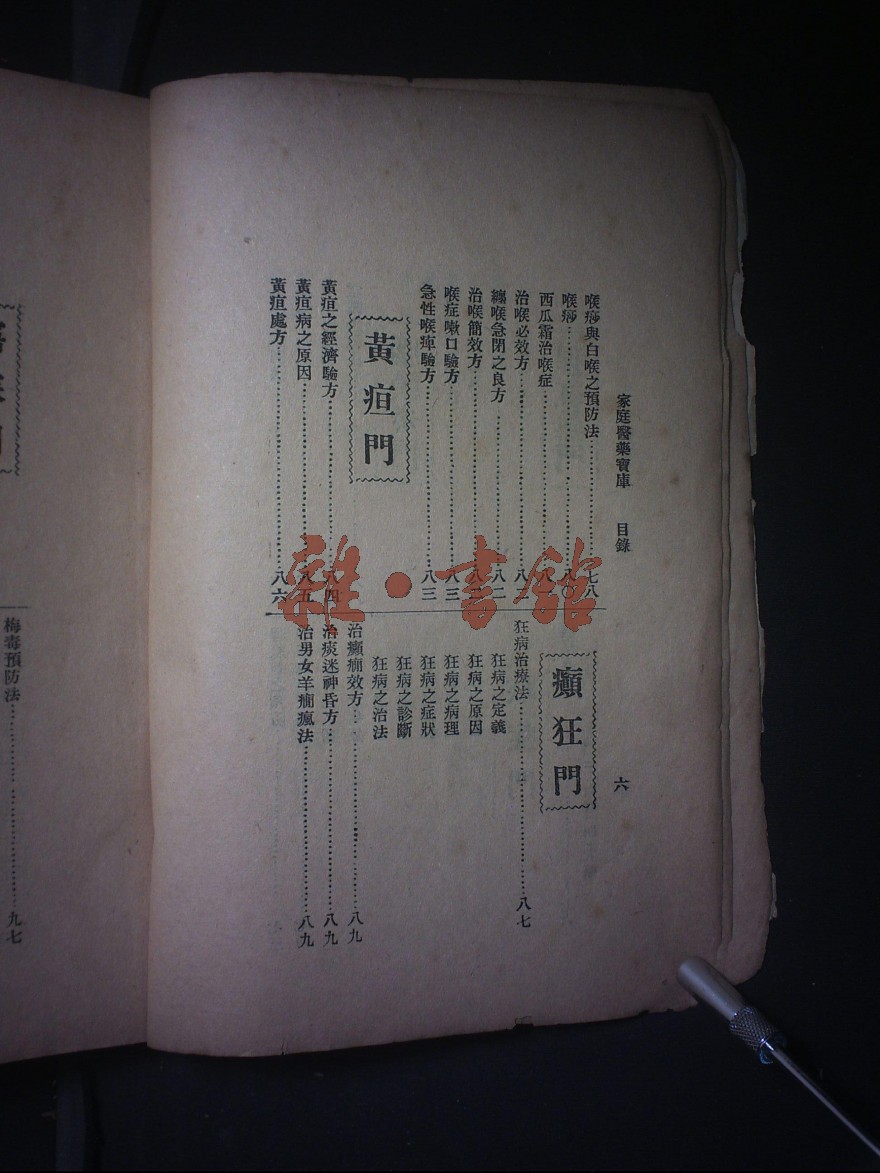 家庭醫藥寶庫 目錄
六
喉痧與白喉之預防法 七八
喉痧 八〇
西瓜霜治喉症 八
治喉必效方 八
纏喉急閉之良方 八二
治喉簡效方 八
喉症嗽口驗方 八三
急性喉痺驗方 八三
黃疸門
黃疸之經濟驗方 八四
黃疸病之原因 八五
黃疸處方 八六
癲狂門
狂病治療法 八七
狂病之定義
狂病之原因
狂病之病理
狂病之症狀
狂病之診斷
狂病之治法
治癲癇效方 八九
治痰迷神昏方 八九
治男女羊癇瘋法 八九
梅毒預防法 九七
雜·書館